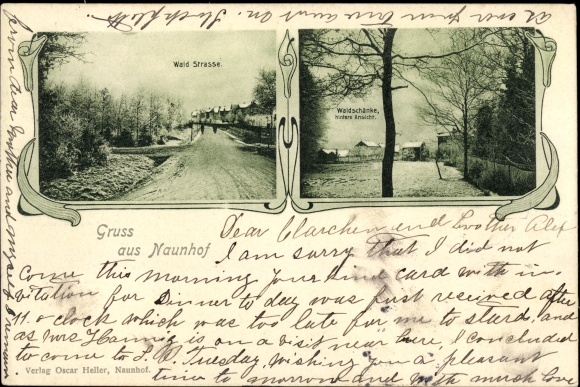 Wald Strasse.
Waldschänke,
hintere Ansicht.
Gruss
aus Naunhof
Dear Clarchen and brother Alex
I am sorry that I did not
come this morning your kind card with in-
vitation for Dinner to day was just received after
11 o clock which was too late for me to start, and
as Mrs is on a visit near here, I concluded
to come to L.P. Tuesday, wishing you a pleasant
time to morrow and with much love
from dear and myself I remain
as ever your
Verlag Oscar Heller, Naunhof.